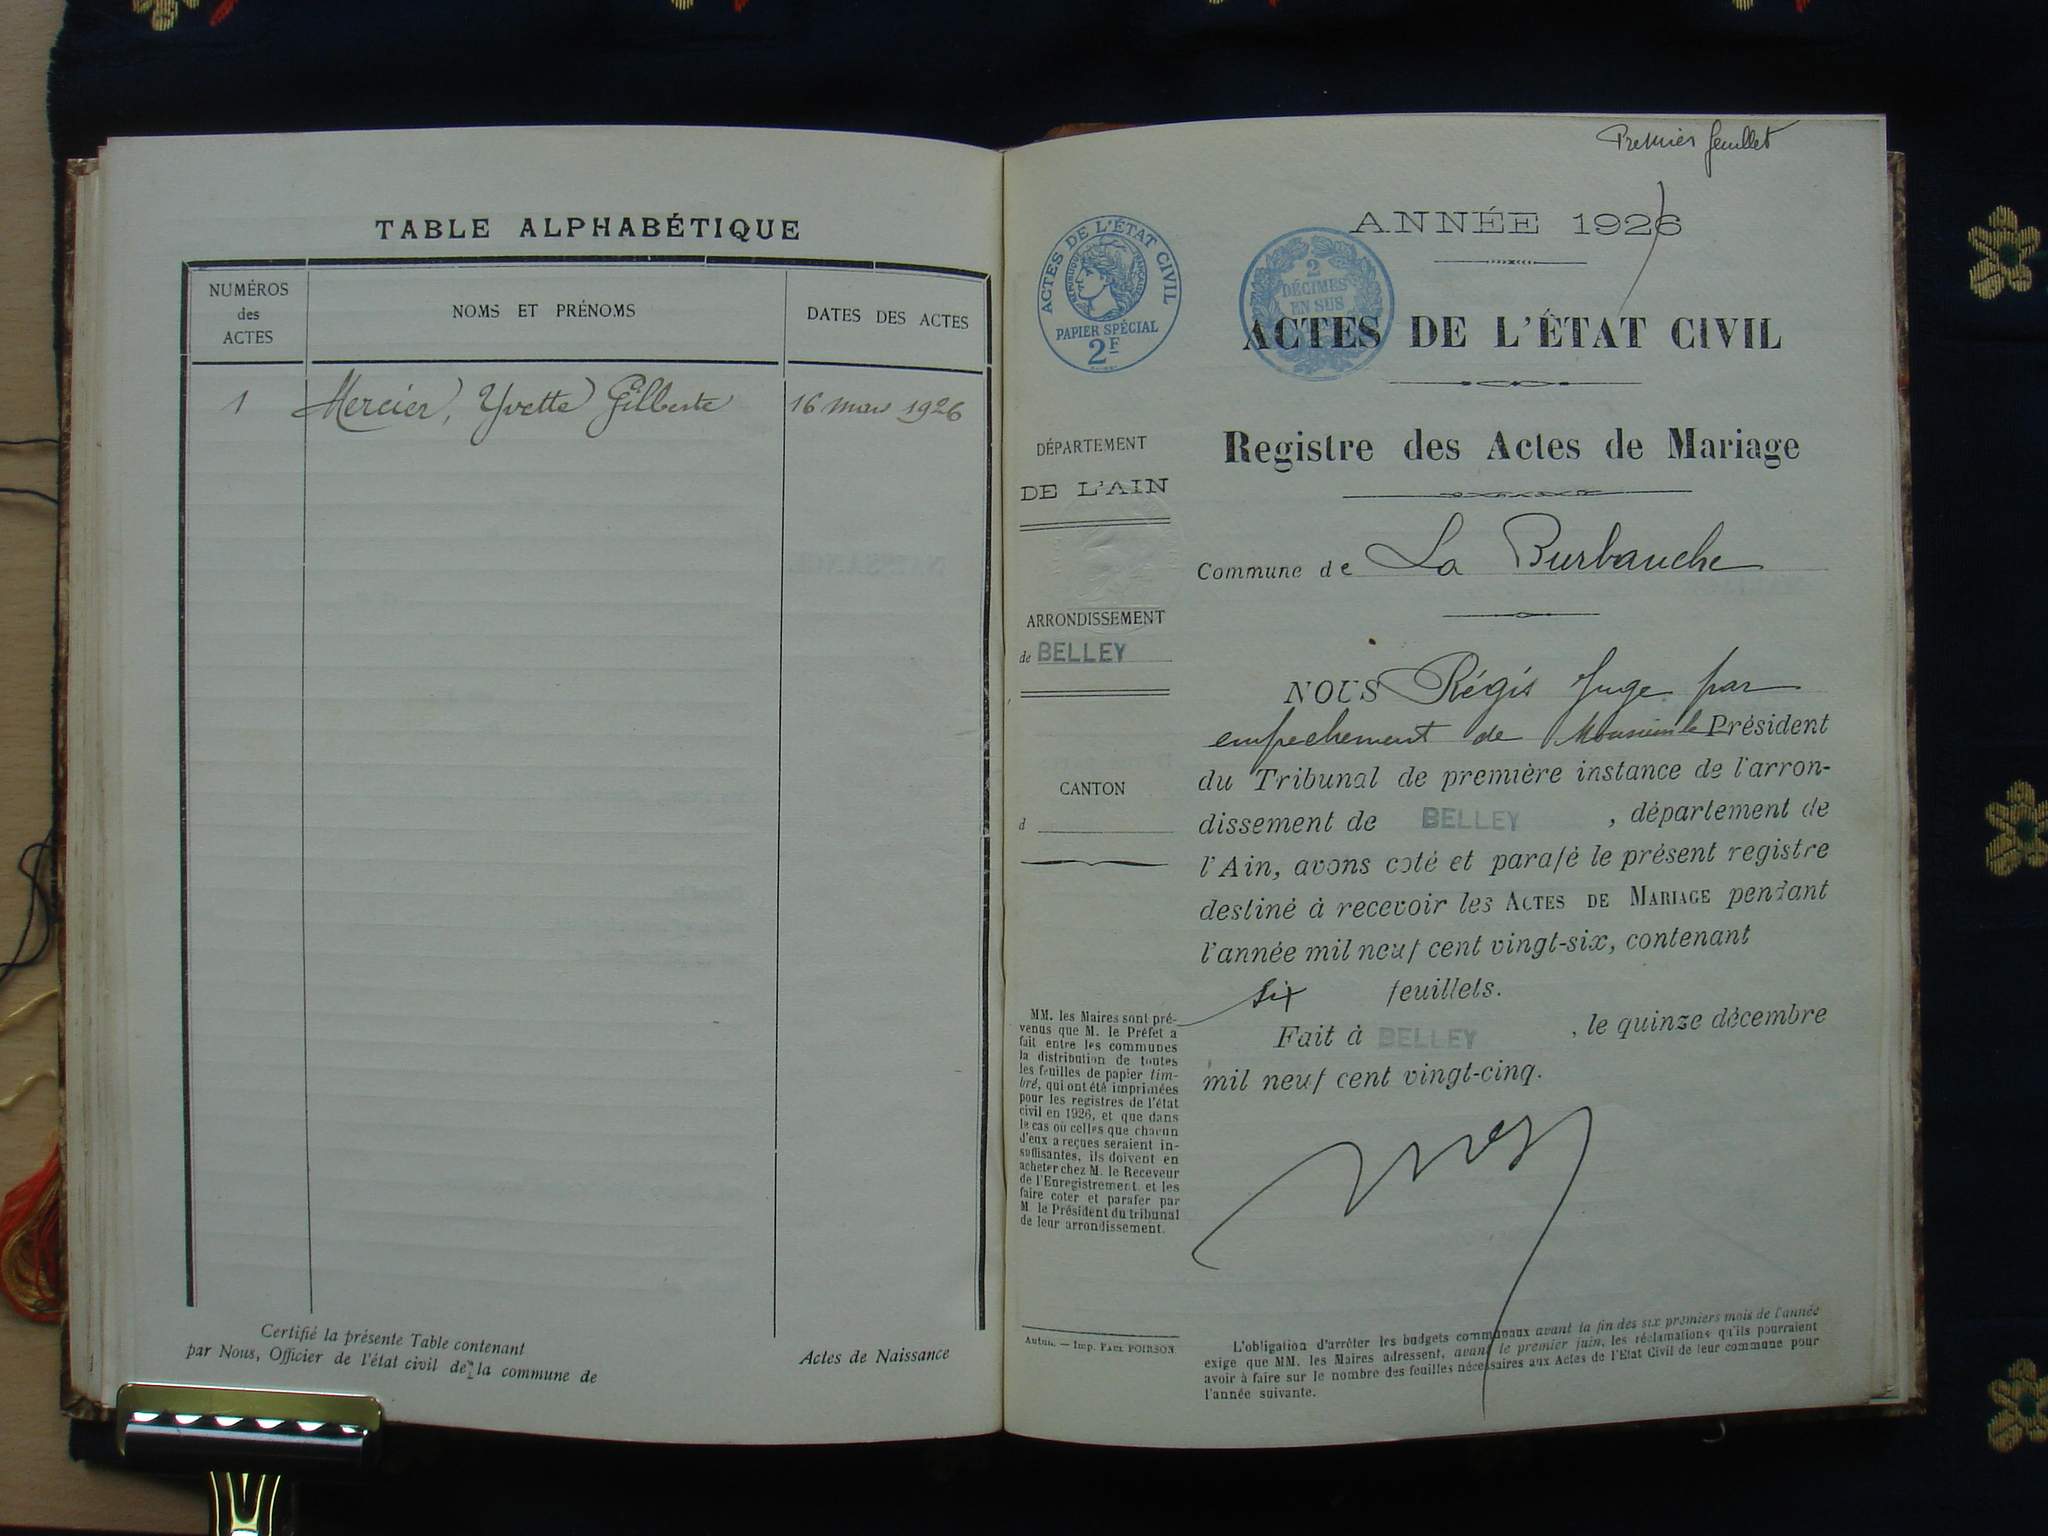 TABLE ALPHABÉTIQUE
NUMÉROS
des
ACTES
NOMS ET PRÉNOMS
DATES DES ACTES
1 Mercier, Yvette Gilberte 16 mars 1926
Certifié la présente Table contenant
par Nous, Officier de l'état civil de la commune de
Actes de Naissance
Premier feuillet
ANNÉE 1926
ACTES DE L'ÉTAT CIVIL
RÉPUBLIQUE FRANÇAISE
PAPIER SPÉCIAL
2F
2
DÉCIMES
EN SUS
ACTES DE L'ÉTAT CIVIL
Registre des Actes de Mariage
DÉPARTEMENT
DE L'AIN
Commune de La Burbanche
ARRONDISSEMENT
de BELLEY
CANTON
d
NOUS Régis Juge par
empechement de Monsieur le Président
du Tribunal de première instance de l'arron-
dissement de BELLEY, département de
l'Ain, avons coté et parafé le présent registre
destiné à recevoir les ACTES DE MARIAGE pendant
l'année mil neuf cent vingt-six, contenant
six feuillets.
Fait à BELLEY, le quinze décembre
mil neuf cent vingt-cinq.
MM. les Maires sont pré-
venus que M. le Préfet a
fait entre les communes
la distribution de toutes
les feuilles de papier tim-
bré, qui ont été imprimées
pour les registres de l'état
civil en 1926, et que dans
le cas où celles que chacun
d'eux a reçues seraient in-
suffisantes, ils doivent en
acheter chez M. le Receveur
de l'Enregistrement et les
faire coter et parafer par
M. le Président du tribunal
de leur arrondissement.
Autun. — Imp. Paul POIRSON
L'obligation d'arrêter les budgets communaux avant la fin des six premiers mois de l'année
exige que MM. les Maires adressent, avant le premier juin, les réclamations qu'ils pourraient
avoir à faire sur le nombre des feuilles nécessaires aux Actes de l'Etat Civil de leur commune pour
l'année suivante.